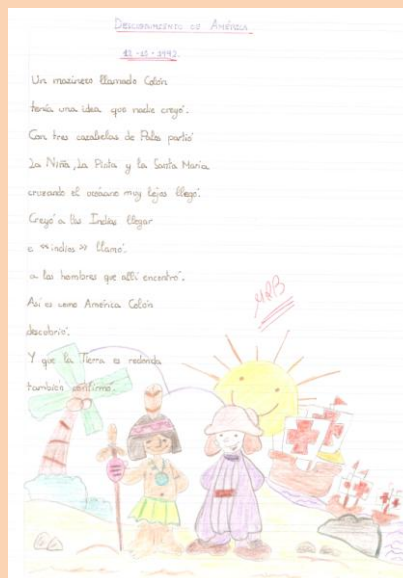 Descubrimiento de América
12-10-1492.
Un marinero llamado Colón
tenía una idea que nadie creyó.
Con tres carabelas de Palos partió
La Niña, La Pinta y la Santa María
cruzando el océano muy lejos llegó.
Creyó a las Indias llegar
e «indios» llamó.
a los hombres que allí encontró.
Así es como América Colón
descubrió.
Y que la Tierra es redonda
también confirmó.